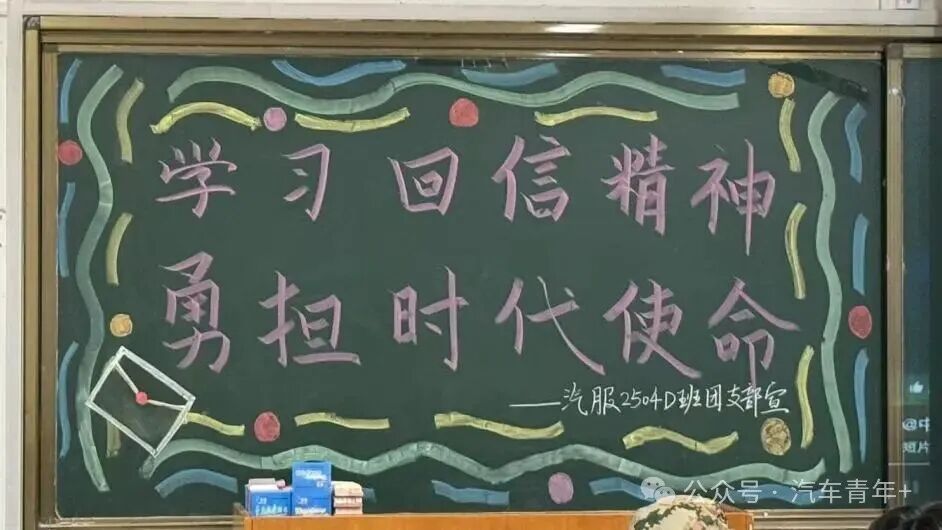 学习回信精神
勇担时代使命
——汽服2504D班团支部宣
@中
短片
公众号·汽车青年+